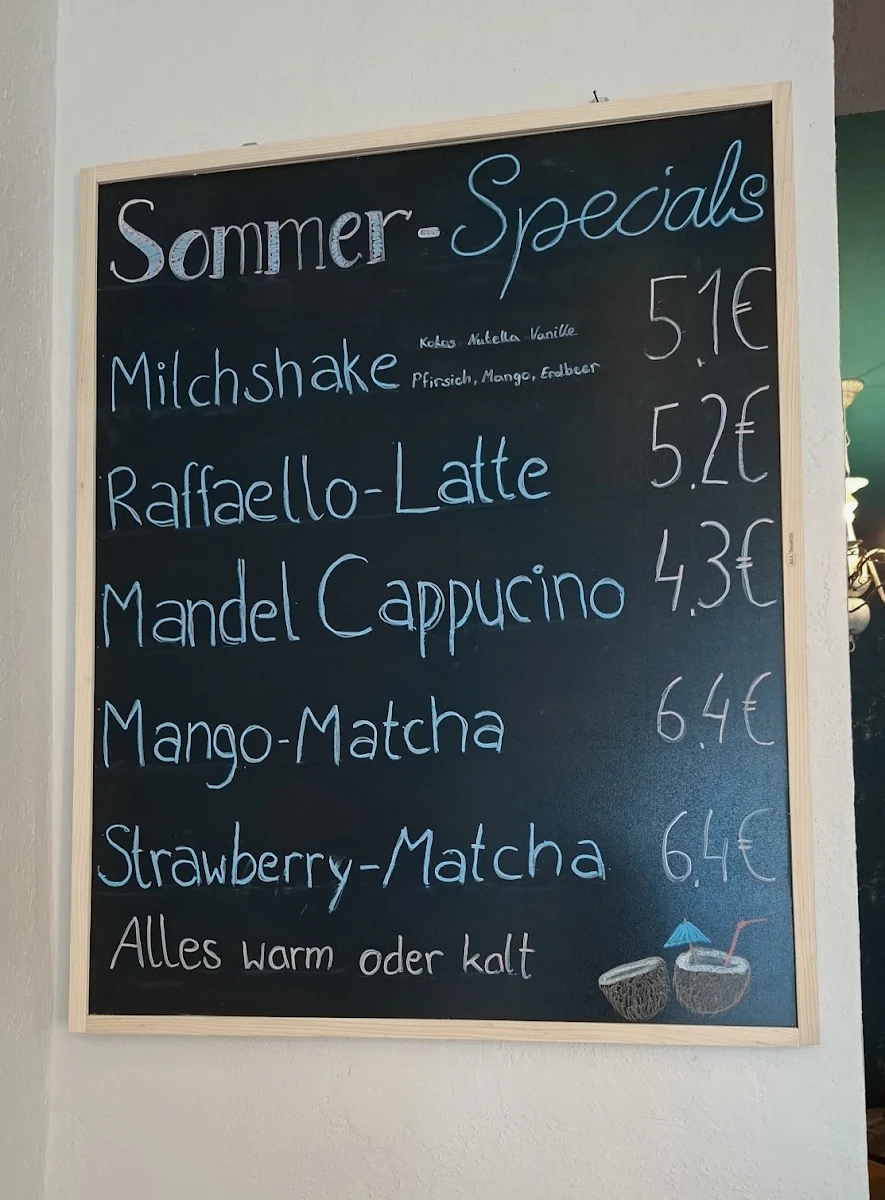 Sommer-Specials
Milchshake Kokos Nutella Vanille 5,1€
Pfirsich, Mango, Erdbeer
Raffaello-Latte 5,2€
Mandel Cappucino 4,3€
Mango-Matcha 6,4€
Strawberry-Matcha 6,4€
Alles warm oder kalt